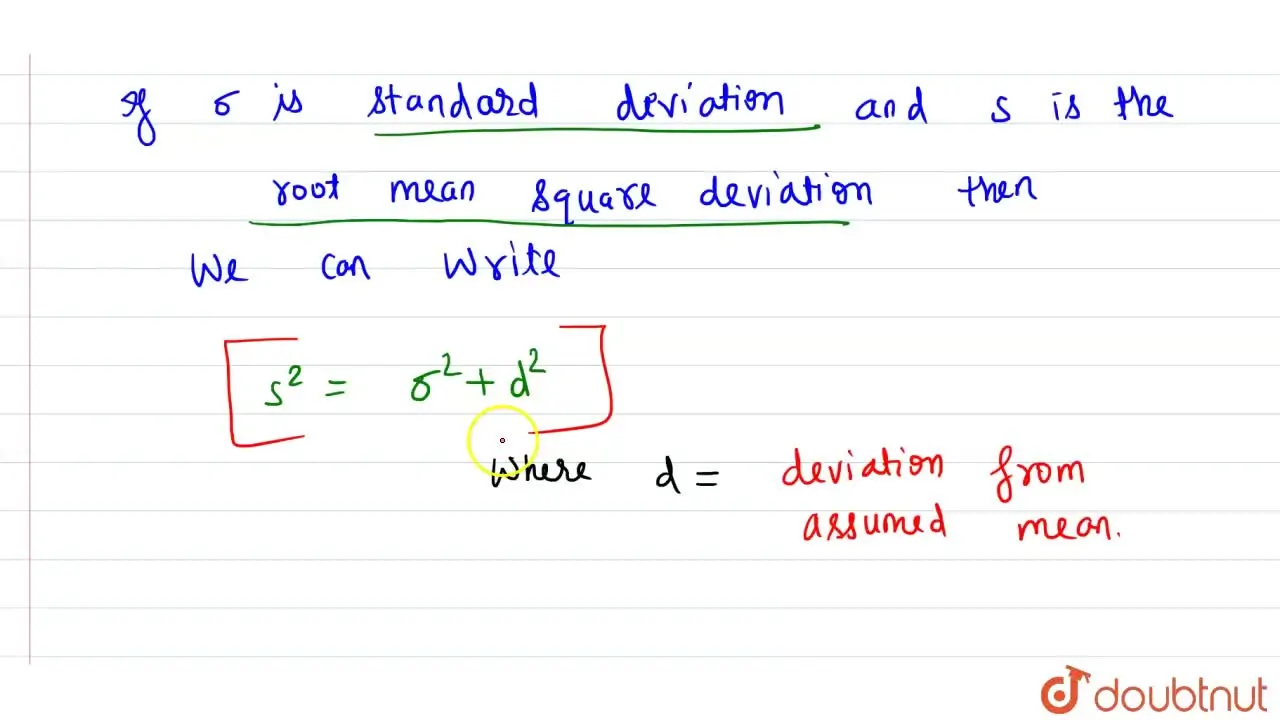 If σ is standard deviation and s is the
root mean square deviation then
We can write
s² = σ² + d²
Where d = deviation from
assumed mean.
doubtnut